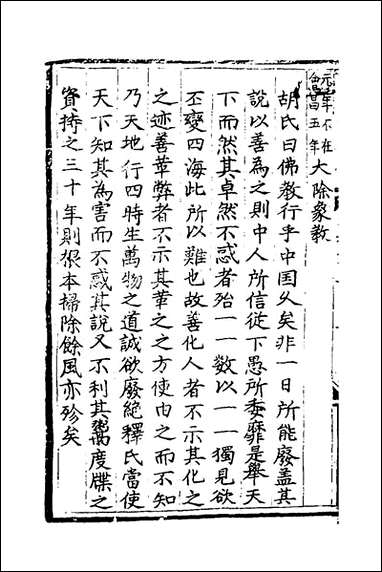 元年不在
會昌五年大除象教
胡氏曰佛教行乎中国乆矣非一日所能廢盖其
說以善為之則中人所信從下愚所委靡是舉天
下而然其卓然不惑者殆一一數以一一獨見欲
丕變四海此所以難也故善化人者不示其化之
之迹善革弊者不示其革之之方使由之而不知
乃天地行四時生萬物之道誠欲廢絶釋氏當使
天下知其為害而不惑其說又不利其鬻度牒之
資持之三十年則根本掃除餘風亦殄矣